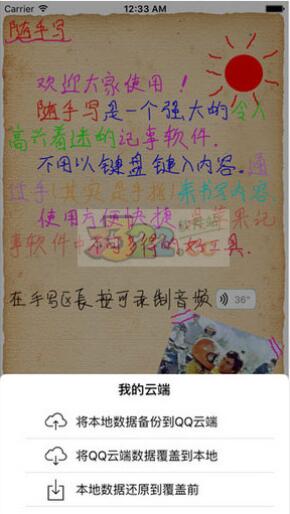 Carrier 12:33 AM
随手写
欢迎大家使用！
随手写是一个强大的令人
高兴着迷的记事软件.
不用以键盘键入内容.通
过手(其实是手指)来书写内容.
使用方便快捷.是苹果记
事软件中不可多得的好工具.
在手写区长按可录制音频 36"
我的云端
将本地数据备份到QQ云端
将QQ云端数据覆盖到本地
本地数据还原到覆盖前